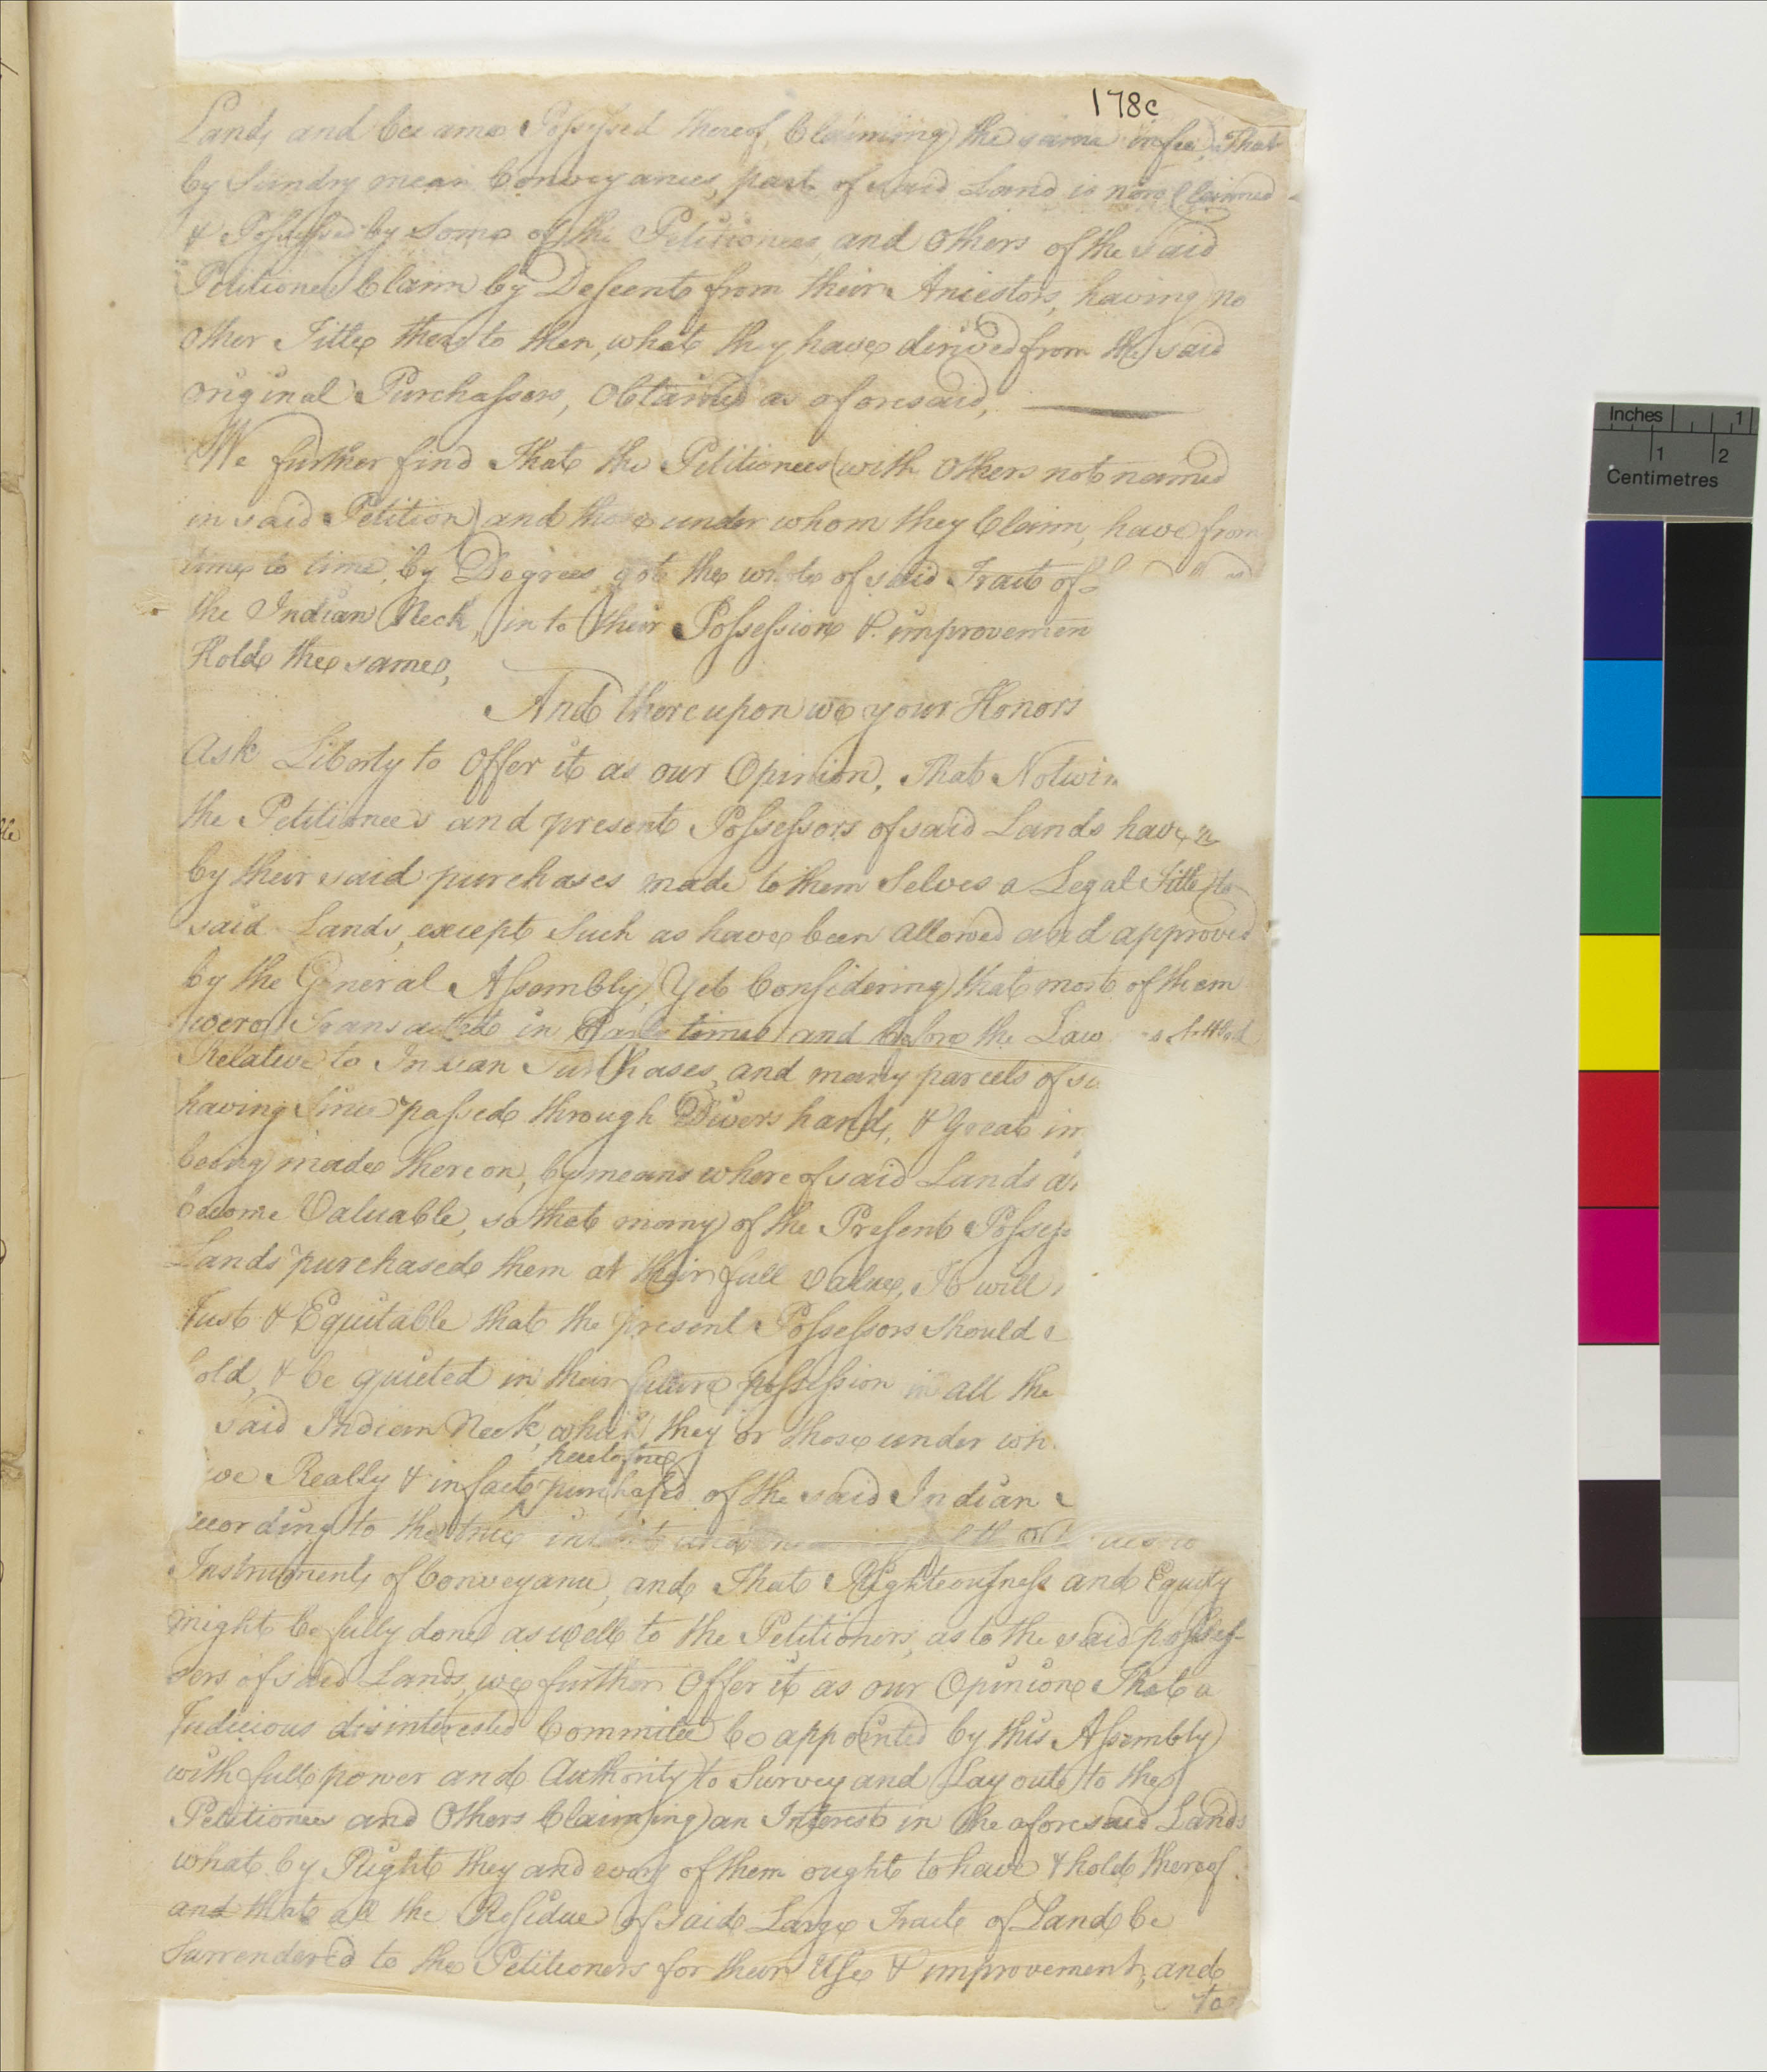 178c
Lands and became Possessed thereof, Claiming the same in fee, That
by Sundry mean Conveyances, part of said Land is now Claimed
& Possessed by Some of the Petitionees, and Others of the said
Petitionees Claim by Descent from their Ancestors, having no
Other Title thereto then, what they have derived from the said
original Purchassors, Obtained as aforesaid,
We further find That the Petitionees (with Others not named
in said Petition) and those under whom they Claim, have from
time to time, by Degrees got the whole of said Tract of
the Indian Neck, in to their Possession & improvemen
Hold the same,
And thereupon we your Honors
Ask Liberty to Offer it as our Opinion, That Notwi
the Petitionees and present Possessors of said Lands have
by their said purchases made to them Selves a Legal Title to
said Lands, except Such as have been allowed and approved
by the General Assembly, Yet Considering that most of them
were transacted in Early times and before the Law settled
Relative to Indian Purchases, and many parcels of
having Since passed through Divers hands, & Great im
being made thereon, by means whereof said Lands a
become Valuable, so that many of the Present Possess
Lands purchased them at their full Value, It will
Just & Equitable that the present Possessors should
hold, & be quieted in their future possession in all the
said Indian Neck, which they or those under wh
heretofore
ve Really & in fact purchased of the said Indian
ccording to the true intent and
Instruments of Conveyance, and That Righteousness and Equity
might be fully done as well to the Petitioners, as to the said posses-
sors of said Lands, we further Offer it as our Opinion That a
Judicious disinterested Committee be appointed by this Assembly
with full power and Authority to Survey and Lay out to the
Petitionees and Others Claiming an Interest in the aforesaid Lands
what by Right they and every of them ought to have & hold thereof.
and that all the Residue of said Large Tract of Land be
Surrendered to the Petitioners for their Use & improvement, and
to
Inches 1
1 2
Centimetres